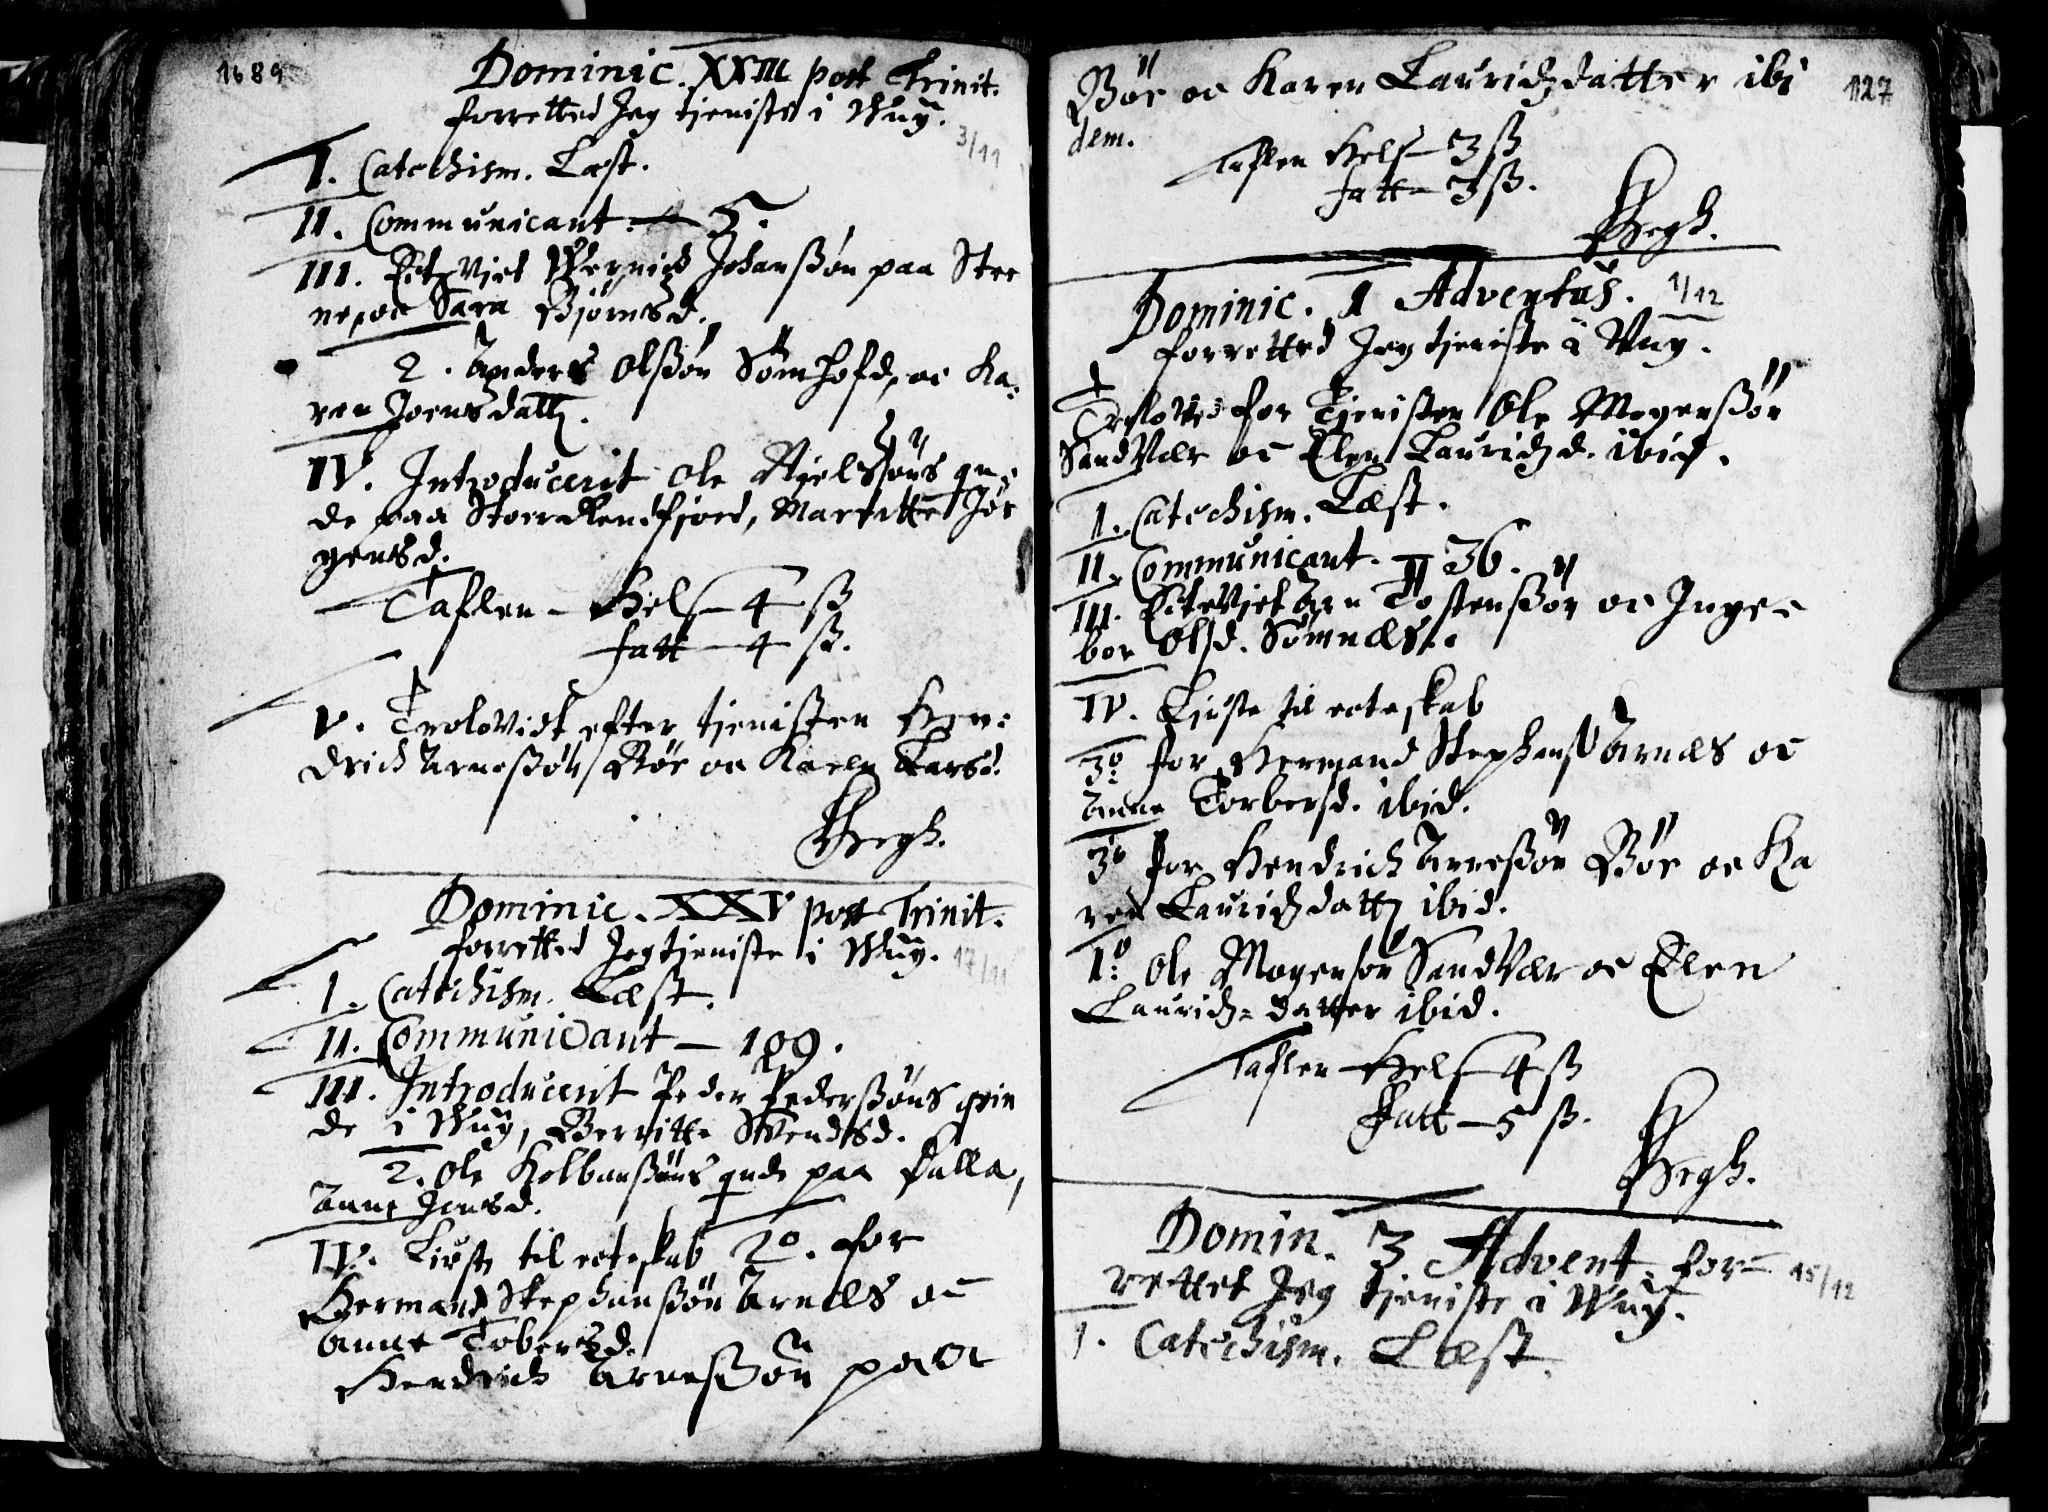 1689
Dominic. XXIII post Trinit.
forretted Jeg tjeniste i Wug.
3/11
I. Catechism. Læst.
II. Communicant. — 5.
III. Ectevjet Wernich Johanßøn paa Stee
ne, oc Sara Bjørnsd.
2. Anders Olßøn Sømhofd, oc Ka:
ren Joensdatt.
IV. Introducerit Ole Nielsøns qn:
de paa Stoerdkendfjord, Marritte Jør
gensd.
Taflen - Hels 4 ß
fatt - 4 ß.
V. Trolovidt efter tjenisten Hen:
drich Arneßøn Bøe oc Karen Larsd.
Hegh.
Dominic. XXV post Trinit.
forretted Jeg tjeniste i Wug.
17/11
I. Catechism. Læst.
II. Communicant — 109.
III. Introducerit Peder Pederßøns qvin
de i Wug, Berritte Svendsd.
2. Ole Kolbanßøns qnde paa Salla,
Anne Jensd.
IV. Liuste til ecteskab 2o. for
Hermand Stephanßøn Arnæs oc
Anne Tobersd.
Hendrich Arneßøn paa
127
Bøe oc Karen Lauridzdatter ibi
dem.
Taflen Hels 3 ß
fatt - 3 ß.
Hegh.
Dominic. 1 Adventus.
1/12
forretted Jeg tjeniste i Wug.
Trolovid for Tjenisten Ole Mogenßøn
Sandvær oc Elen Lauridzd. ibid.
I. Catechism. Læst.
II. Communicant. — 36.
III. Ectevjet Arn Tostenßøn oc Inge=
bor Olsd. Sømnæs.
IV. Liuste til ecteskab
3o for Hermand Stephans Arnæs oc
Anne Torbersd. ibid.
3o for Hendrich Arneßøn Bøe oc Ka
ren Lauridzdatt ibid.
1o. Ole Mogensøn Sandvær oc Elen
Lauridz= datter ibid.
Taflen Hels 4 ß
Fatt — 5 ß.
Hegh.
Domin. 3 Advent for=
15/12
rettet Jeg tjeniste i Wug.
1. Catechism. Læst.